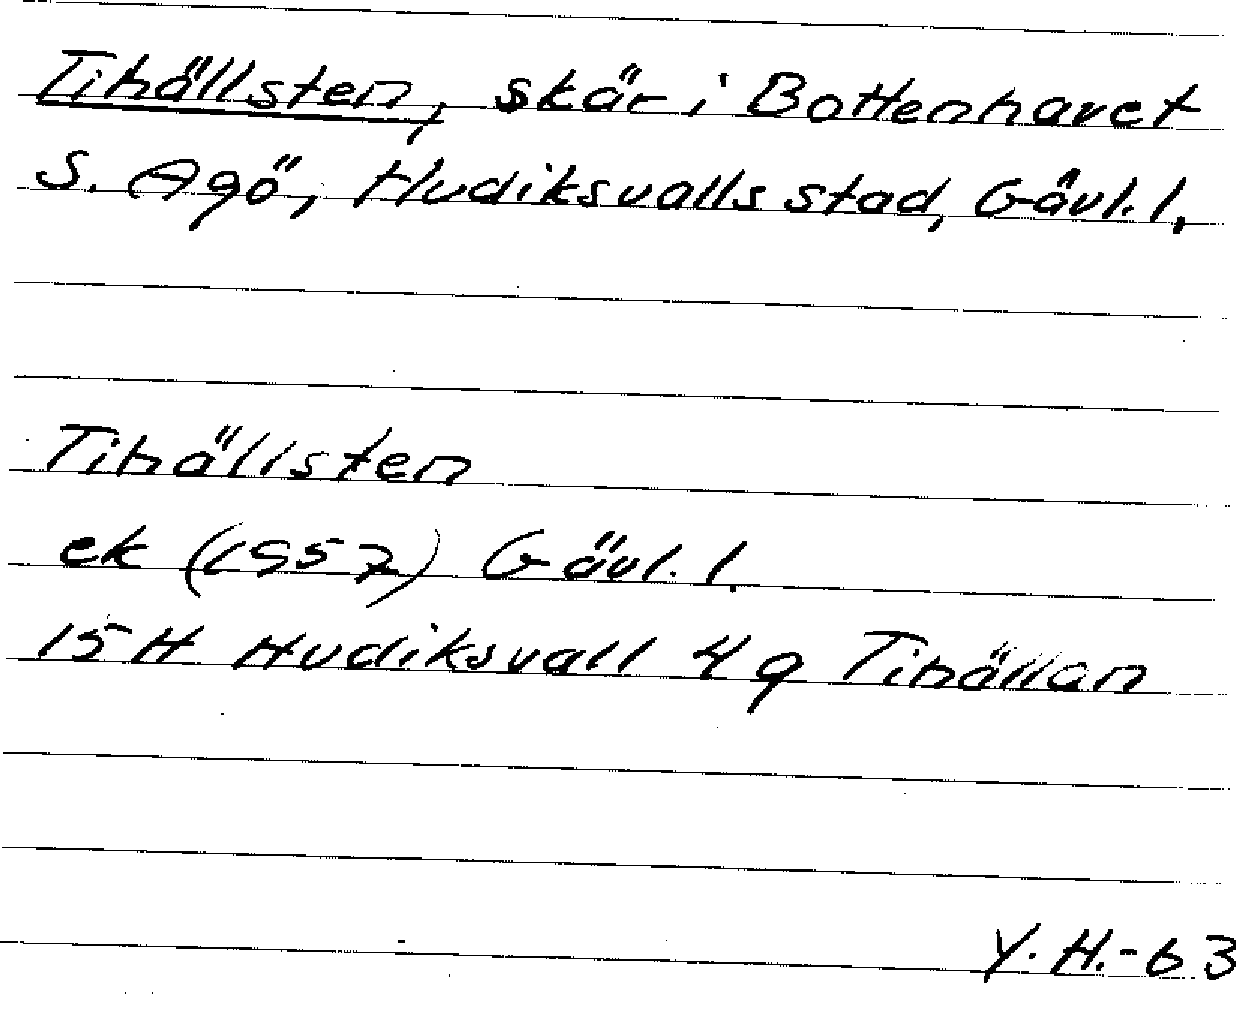 Tihällsten, skär i Bottenhavet
S. Agö, Hudiksvalls stad, Gävl. l.
Tihällsten
ek (1957) Gävl. l.
15 H Hudiksvall 4 g Tihällan
Y. H. -63